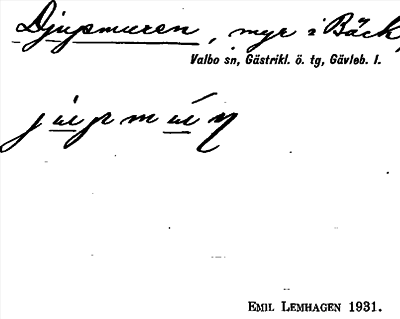 Djupmuren, myr i Bäck,
Valbo sn, Gästrikl. ö. tg, Gävleb. l.
EMIL LEMHAGEN 1931.